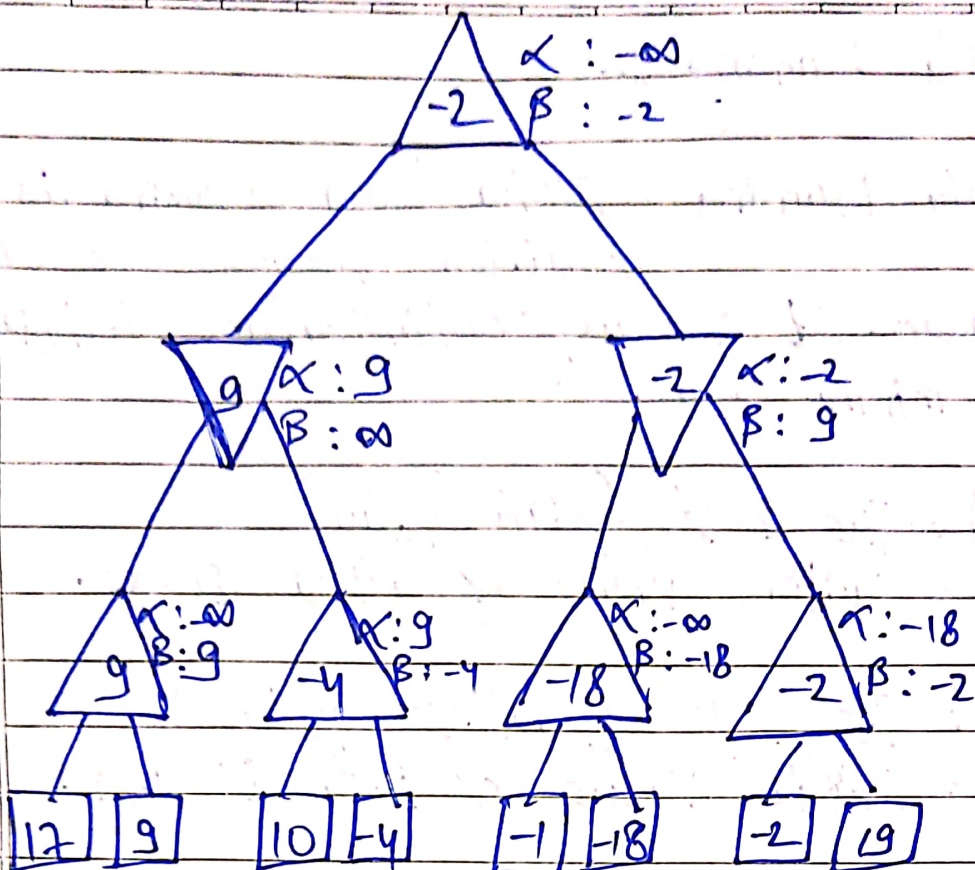 α : -∞
-2 β : -2
9 α : 9
β : ∞
-2 α : -2
β : 9
α : -∞
β : 9
9
α : 9
β : -4
-4
α : -∞
β : -18
-18
α : -18
β : -2
-2
17 9 10 -4 -1 -18 -2 19